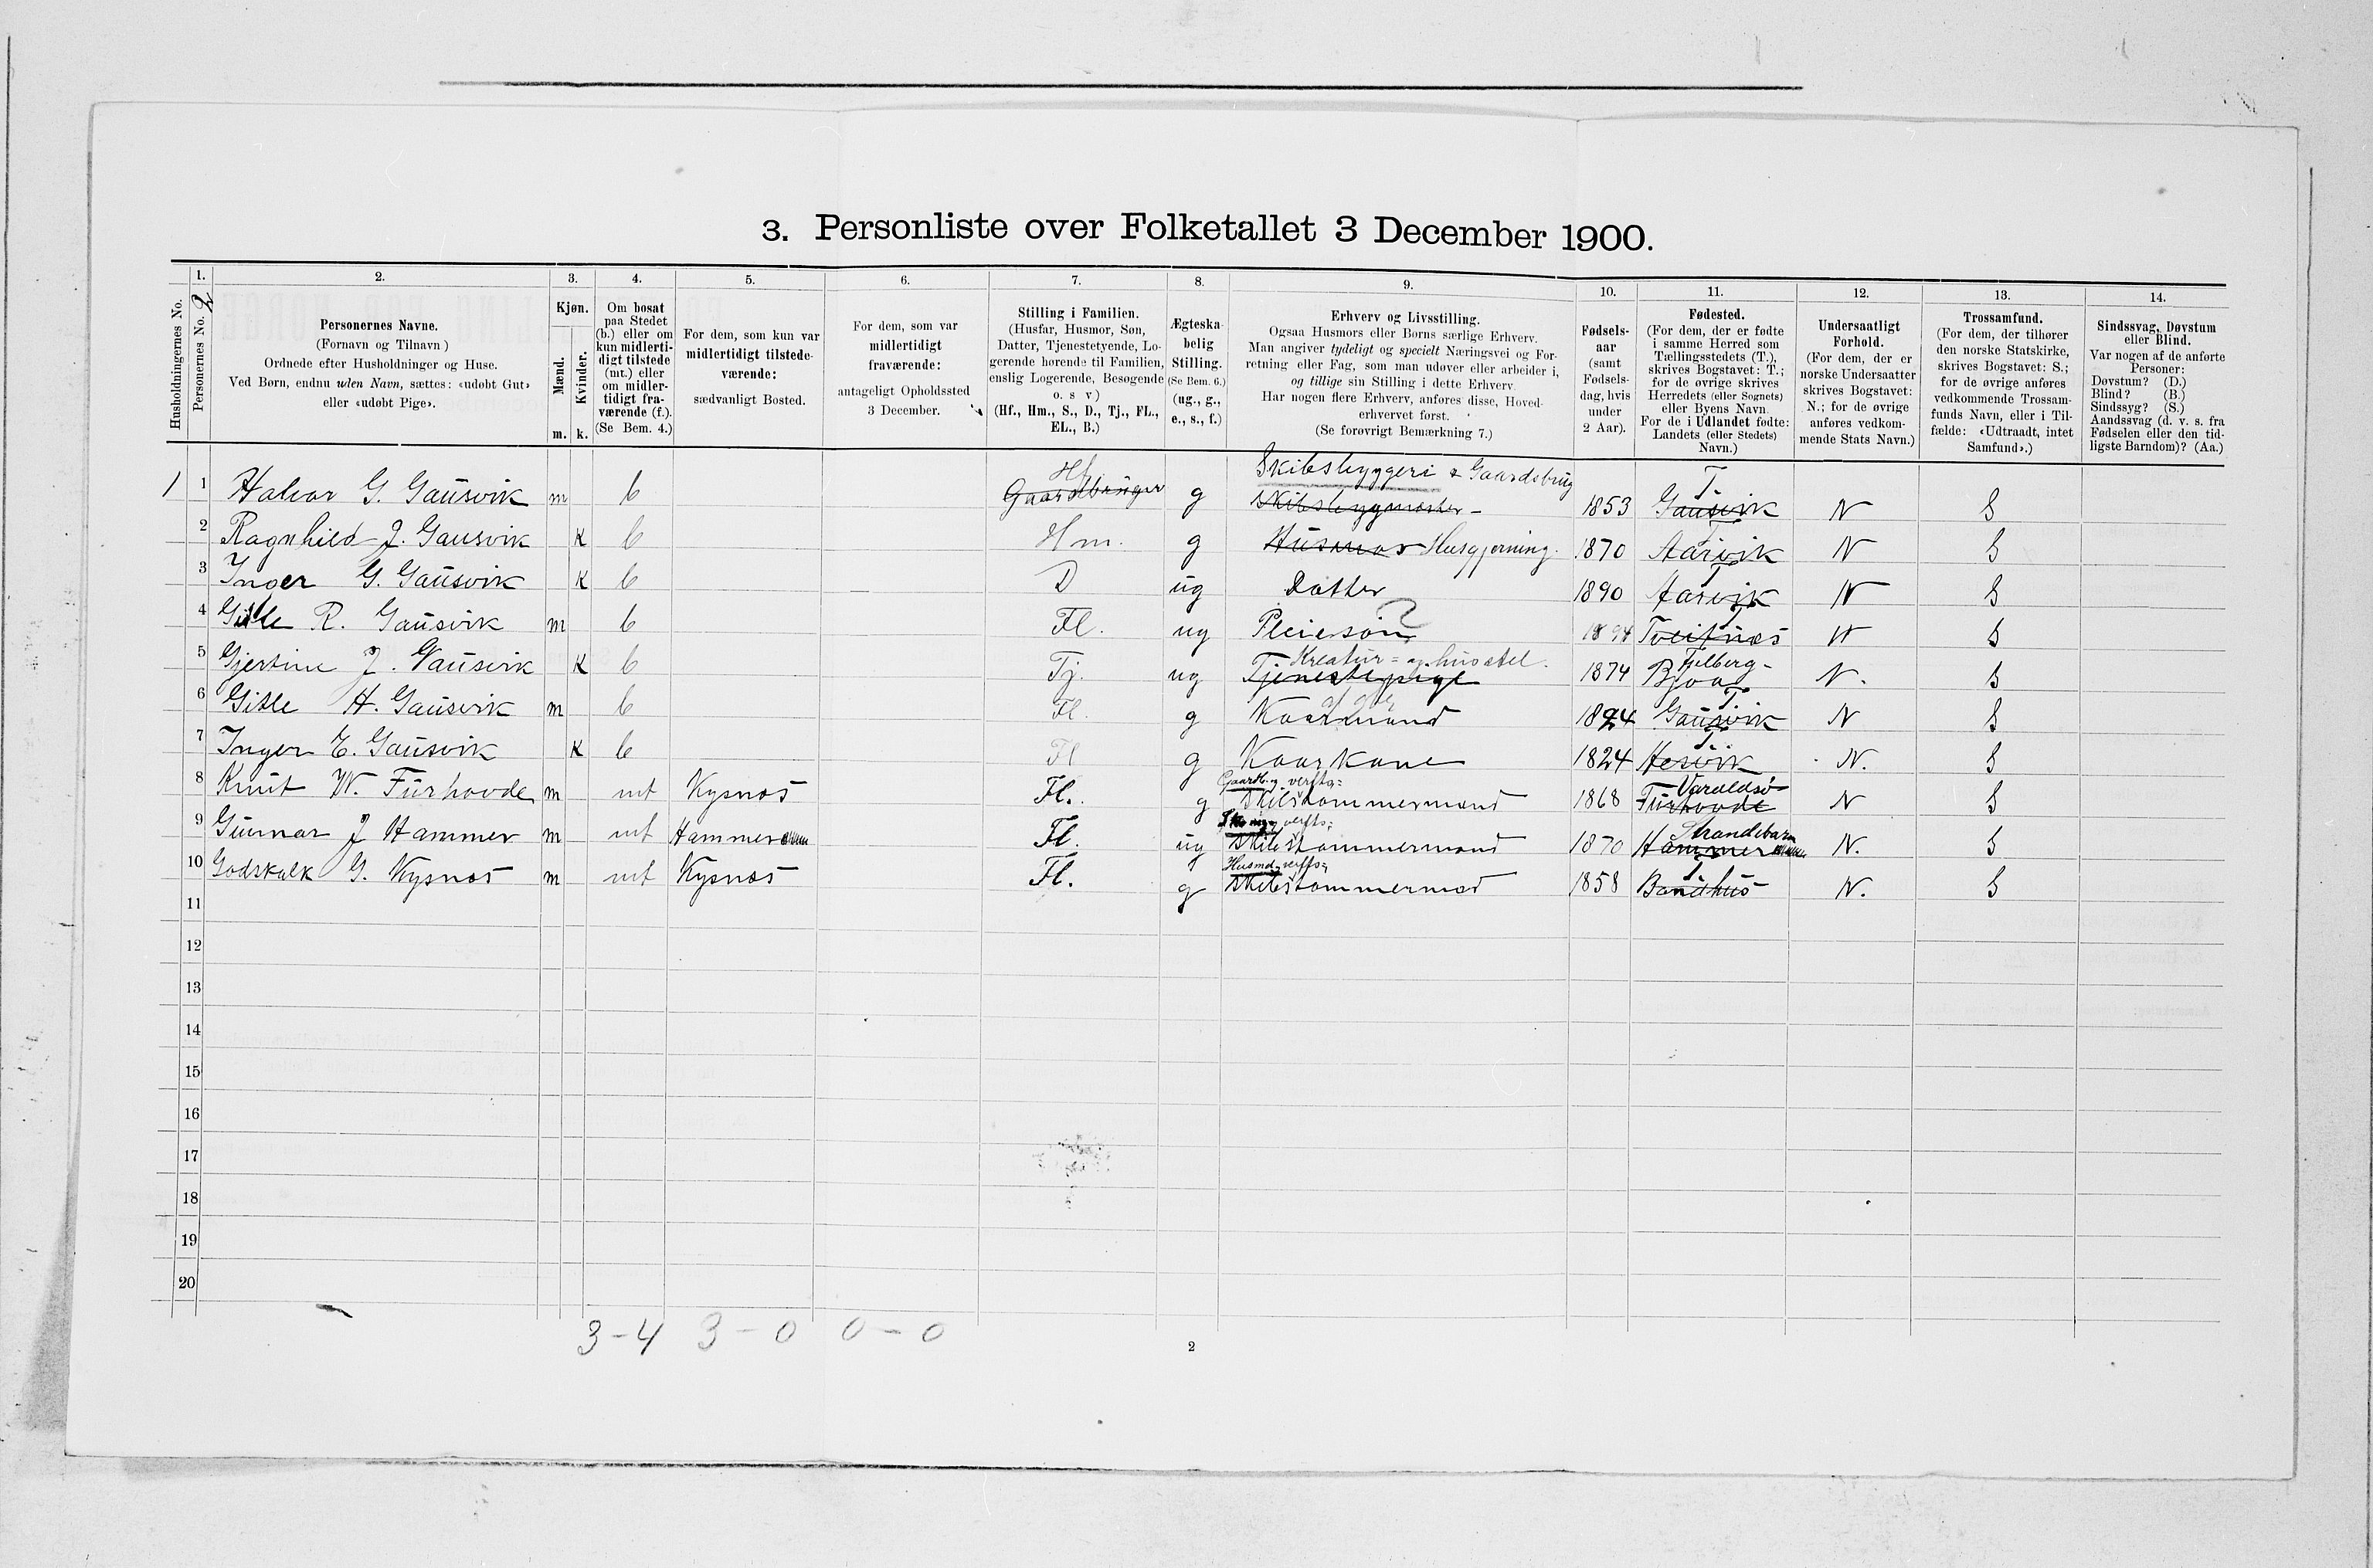 3. Personliste over Folketallet 3 December 1900.
Husholdningernes No.
1.
Personernes No.
2
2.
Personernes Navne.
(Fornavn og Tilnavn)
Ordnede efter Husholdninger og Huse.
Ved Børn, endnu uden Navn, sættes: «udøbt Gut»
eller «udøbt Pige».
3.
Kjøn.
Mænd.
Kvinder.
m. k.
4.
Om bosat
paa Stedet
(b.) eller om
kun midlerti-
digt tilstede
(mt.) eller
om midler-
tidigt fra-
værende (f.).
(Se Bem. 4.)
5.
For dem, som kun var
midlertidigt tilstede-
værende:
sædvanligt Bosted.
6.
For dem, som var
midlertidigt
fraværende:
antageligt Opholdssted
3 December.
7.
Stilling i Familien.
(Husfar, Husmor, Søn,
Datter, Tjenestetyende, Lo-
gerende hørende til Familien,
enslig Logerende, Besøgende
o. s v)
(Hf., Hm., S., D., Tj., FL.,
EL., B.)
8.
Ægteska-
belig
Stilling.
(Se Bem. 6.)
(ug., g.,
e., s., f.)
9.
Erhverv og Livsstilling.
Ogsaa Husmors eller Børns særlige Erhverv.
Man angiver tydeligt og specielt Næringsvei og For-
retning eller Fag, som man udøver eller arbeider i,
og tillige sin Stilling i dette Erhverv.
Har nogen flere Erhverv, anføres disse, Hoved-
erhvervet først.
(Se forøvrigt Bemærkning 7.)
10.
Fødsels-
aar
(samt
Fødsels-
dag, hvis
under
2 Aar).
11.
Fødested.
(For dem, der er fødte
i samme Herred som
Tællingsstedets (T.),
skrives Bogstavet: T.;
for de øvrige skrives
Herredets (eller Sognets)
eller Byens Navn.
For de i Udlandet fødte:
Landets (eller Stedets)
Navn.)
12.
Undersaatligt
Forhold.
(For dem, der er
norske Undersaatter
skrives Bogstavet:
N.; for de øvrige
anføres vedkom-
mende Stats Navn.)
13.
Trossamfund.
(For dem, der tilhører
den norske Statskirke,
skrives Bogstavet: S.;
for de øvrige anføres
vedkommende Trossam-
funds Navn, eller i Til-
fælde: «Udtraadt, intet
Samfund».)
14.
Sindssvag, Døvstum
eller Blind.
Var nogen af de anførte
Personer:
Døvstum? (D.)
Blind? (B.)
Sindssyg? (S.)
Aandssvag (d. v. s. fra
Fødselen eller den tid-
ligste Barndom)? (Aa.)
Hf Skibsbyggeri & Gaardsbrug T
1 1 Halvor G. Gausvik m b Gaardbruger g Skibsbygmester - 1853 Gausvik N S
2 Ragnhild J. Gausvik k b Hm. g Husmor Husgjerning. 1870 Aarvik N S
T
3 Inger G. Gausvik k b D ug Datter 1890 Aarvik N S
T
4 Gisle R. Gausvik m b Fl. ug Pleiesøn ? 1894 Tveitnæs N S
Kreatur= og husstel. Fjelberg-
5 Gjertine J. Gausvik k b Tj. ug Tjenestepige 1874 Bjoa N. S
T
6 Gisle H. Gausvik m b Fl. g Kaarmand 1824 Gausvik N S
T
7 Inger E. Gausvik k b Fl g Kaarkone 1824 Hesvik N. S
Gaardb. og verfts= Varaldsø
8 Knut W. Furhovde m mt Kysnæs Fl. g Skibstømmermand 1868 Furhovde N S
verfts= Strandebarm
9 Gunnar J Hammer m mt Hammer Fl. ug Skibstømmermand 1870 Hammer N. S
Husmd. verfts= T
10 Godskalk G. Kysnæs m mt Kysnæs Fl. g Skibstømmermad 1858 Bondhus N. S
11
12
13
14
15
16
17
18
19
20
3-4 3-0 0-0
2